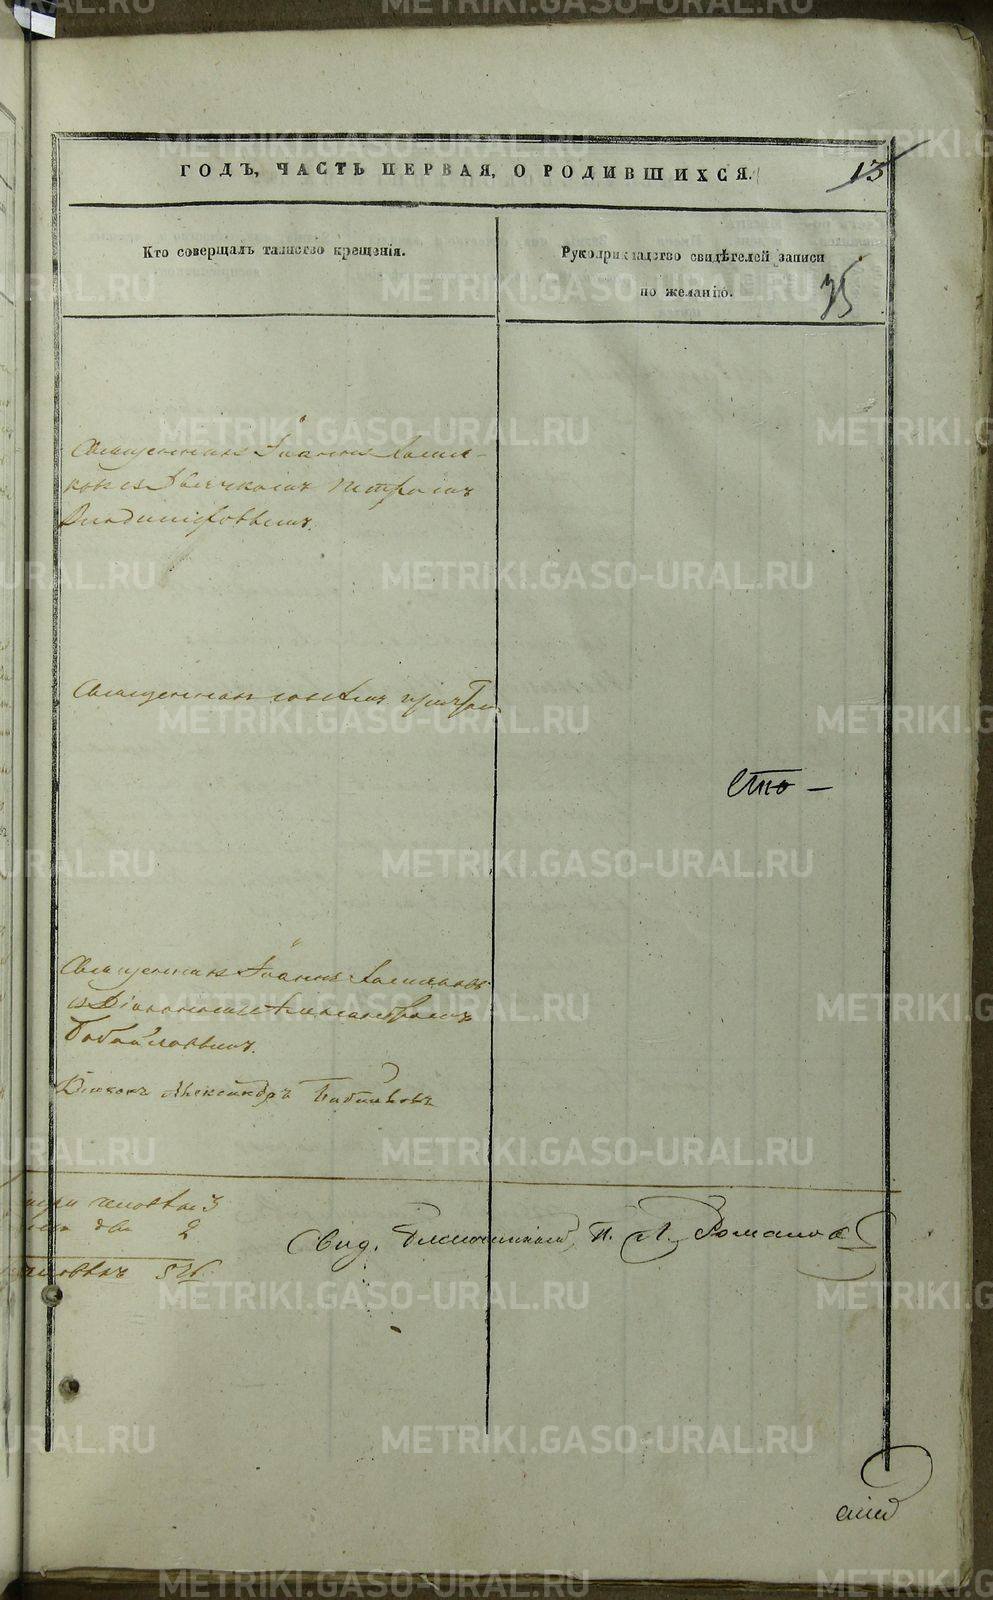 ГОДЪ, ЧАСТЬ ПЕРВАЯ, О РОДИВШИХСЯ.
13
Кто совершалъ таинство крещенія.
Рукоприкладство свидѣтелей записи
по желанію.
35
Священникъ Іоаннъ
съ Дьячкомъ Петромъ
Владиміровымъ.
Священникъ съ тѣмъ же причтомъ
Сто –
Священникъ Іоаннъ
съ Діакономъ Александромъ
Бабайловымъ.
Діаконъ Александръ Бабайловъ
3
два 2
5
Свид. Благочинный, П. Л. Романовъ
METRIKI.GASO-URAL.RU